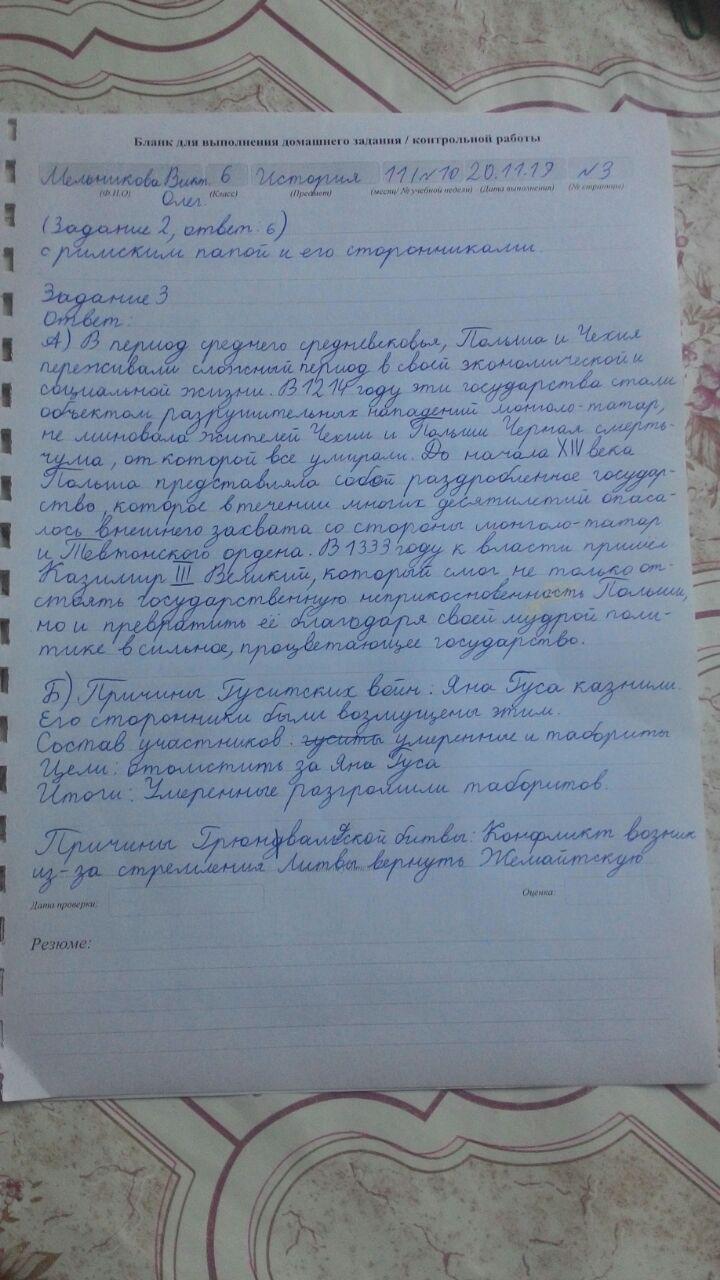 Бланк для выполнения домашнего задания / контрольной работы
Мельникова Викт. 6 История 11/№10 20.11.19 №3
(Ф.И.О) (Класс) (Предмет) (месяц/ № учебной недели) (Дата выполнения) (№ страницы)
Олег.
(Задание 2, ответ: 6)
с римским папой и его сторонниками.
Задание 3
Ответ:
А) В период среднего средневековья, Польша и Чехия
переживали сложный период в своей экономической и
социальной жизни. В 1214 году эти государства стали
объектом разрушительных нападений монголо-татар,
не миновала жителей Чехии и Польши Черная смерть-
чума, от которой все умирали. До начала XIV века
Польша представляла собой раздробленное государ-
ство, которое в течении многих десятилетий опаса-
лось внешнего захвата со стороны монголо-татар
и Тевтонского ордена. В 1333 году к власти пришёл
Казимир III Великий, который смог не только от-
стоять государственную неприкосновенность Польши,
но и превратить её благодаря своей мудрой поли-
тике в сильное, процветающее государство.
Б) Причины Гуситских войн: Яна Гуса казнили.
Его сторонники были возмущены этим.
Состав участников: гуситы умеренные и табориты
Цели: отомстить за Яна Гуса
Итоги: Умеренные разгромили таборитов.
Причины Грюнвальдской битвы: Конфликт возник
из-за стремления Литвы вернуть Жемайтскую
Дата проверки: Оценка:
Резюме: